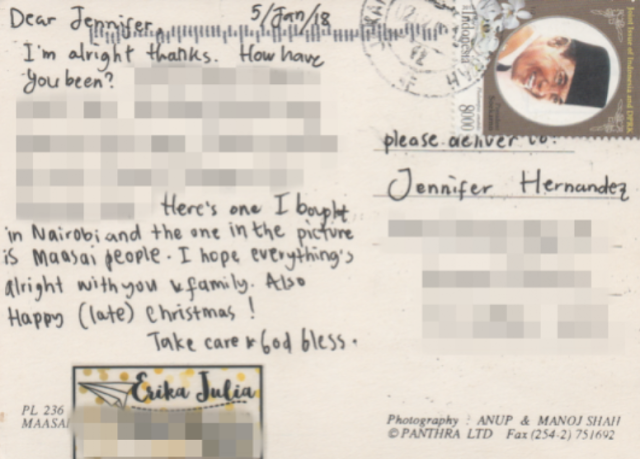 Dear Jennifer, 5/Jan/18
I'm alright thanks. How have
you been?
Here's one I bought
in Nairobi and the one in the picture
is Maasai people. I hope everything's
alright with you & family. Also
Happy (late) Christmas!
Take care & God bless.
Erika Julia
PL 236
MAASAI
Indonesia
8000
please deliver to:
Jennifer Hernandez
Photography : ANUP & MANOJ SHAH
© PANTHRA LTD Fax (254-2) 751692